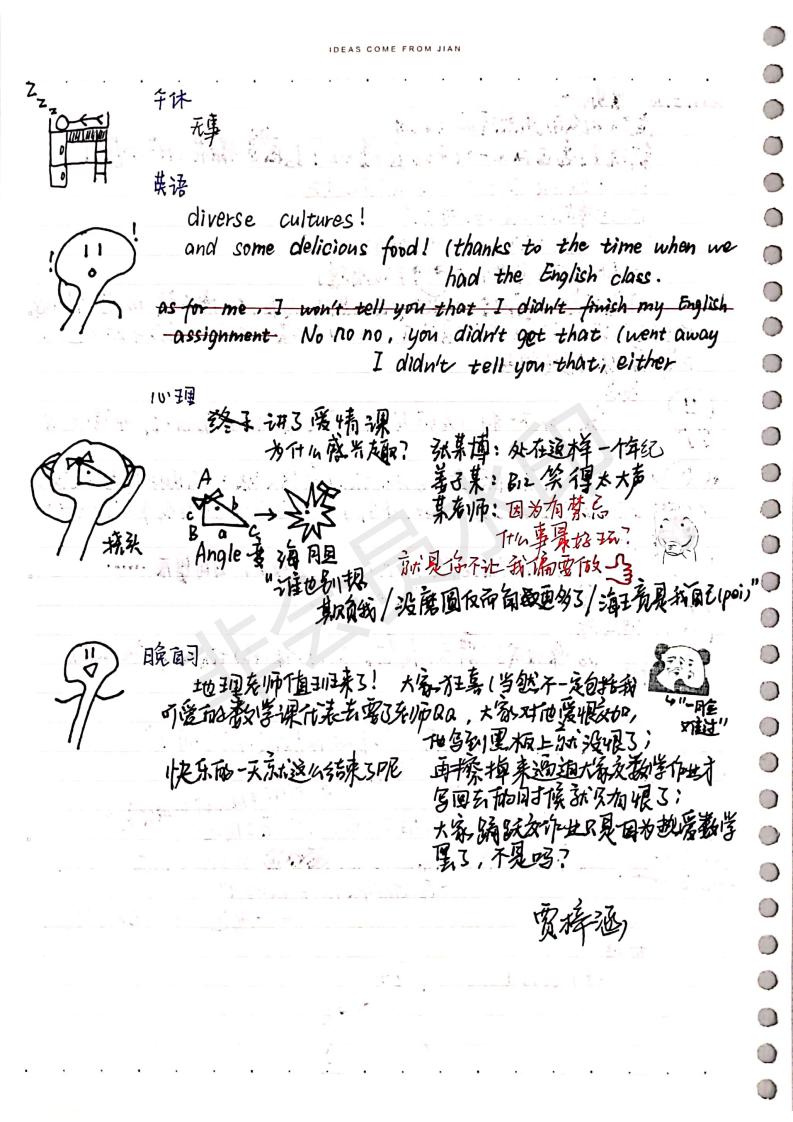 IDEAS COME FROM JIAN
Z Z Z Z
午休
无事
英语
diverse cultures!
and some delicious food! (thanks to the time when we
had the English class.
as for me, I won't tell you that I didn't finish my English
assignment. No no no, you didn't get that (went away
I didn't tell you that, either
心理
终于讲了爱情课
为什么感兴趣?
张某博:处在这样一个年纪
姜子某:Biz 笑得太大声
某老师:因为有禁忌
什么事最好玩?
就是你不让我偏要做
挠头
A
c b
B a C
Angle 变 海胆
"谁也别想
欺负我/没磨圆反而角更多了/海王竟是我自己(pei)"
晚自习
地理老师值班来了!大家狂喜(当然不一定包括我
可爱的数学课代表去要了老师QQ,大家对他爱恨交加,
他写到黑板上就没恨了;
再擦掉来逼迫大家交数学作业才
写回去的时候就只有恨了;
大家踊跃交作业只是因为热爱数学
罢了,不是吗?
"一脸
难过"
快乐的一天就这么结束了呢
贾梓涵
非会员水印